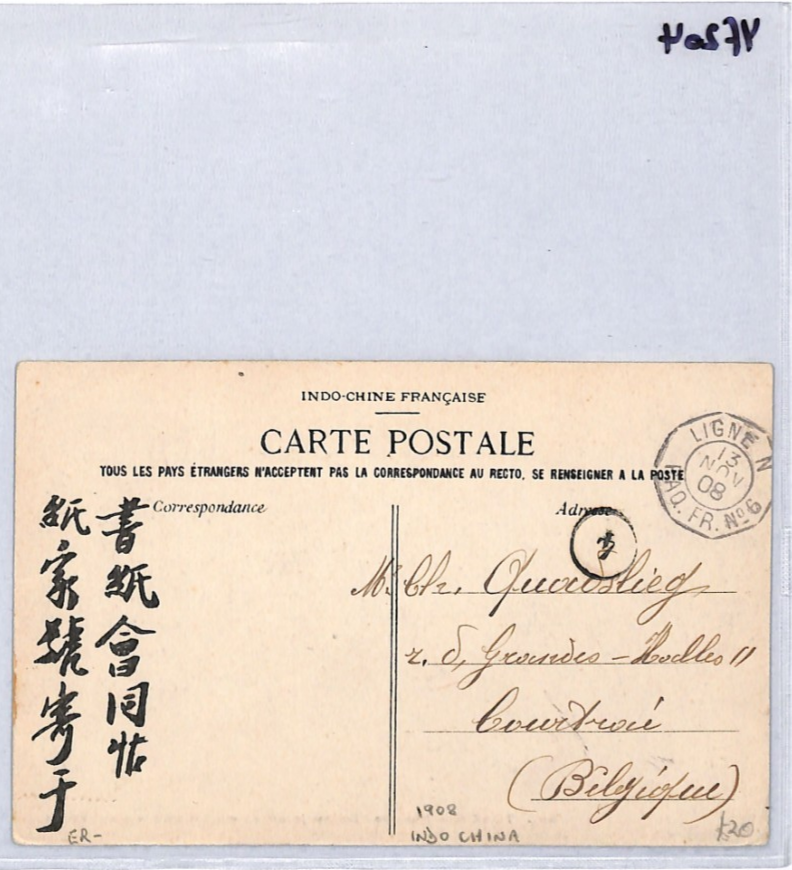 INDO-CHINE FRANÇAISE
CARTE POSTALE
TOUS LES PAYS ÉTRANGERS N'ACCEPTENT PAS LA CORRESPONDANCE AU RECTO, SE RENSEIGNER A LA POSTE
LIGNE N
13
NOV
08
PAQ. FR. Nº 6
Correspondance
Adresse
書紙會同帖
紙家號寄于
Mr Ch.
r. d. Grandes-Halles 11
Courtrai
(Belgique)
1908
INDO CHINA
ER-
£20